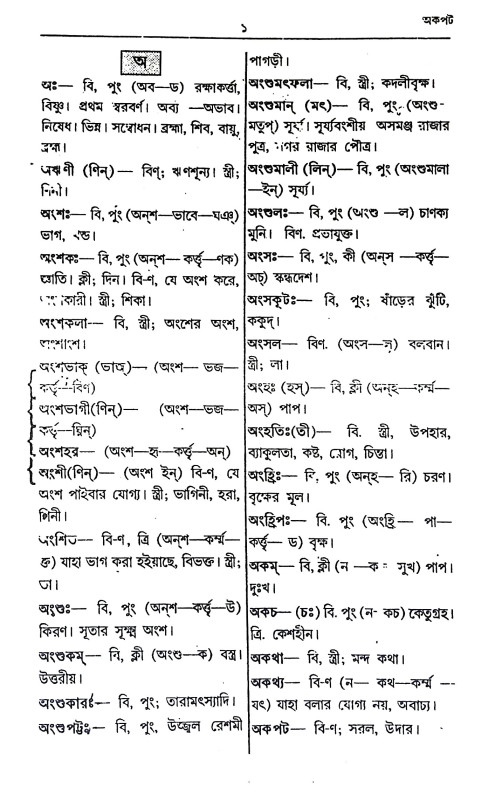 অকপট
১
অ
অঃ— বি, পুং (অব—ড) রক্ষাকর্ত্তা,
বিষ্ণু। প্রথম স্বরবর্ণ। অব্য —অভাব।
নিষেধ। ভিন্ন। সম্বোধন। ব্রহ্মা, শিব, বায়ু,
ব্রহ্ম।
অঋণী (ণিন্)— বিণ্; ঋণশূন্য। স্ত্রী;
অংশঃ— বি, পুং (অন্‌শ—ভাবে—ঘঞ্)
ভাগ, খণ্ড।
অংশকঃ— বি, পুং (অন্‌শ—কর্ত্তৃ—ণক)
জ্ঞাতি। ক্লী; দিন। বি-ণ, যে অংশ করে,
স্ত্রী; শিকা।
অংশকলা— বি, স্ত্রী; অংশের অংশ,
অংশাংশ।
অংশভাক্ (ভাজ্)— (অংশ—ভজ—
কর্ত্তৃ—বিণ)
অংশভাগী(ণিন্)— (অংশ—ভজ—
কর্ত্তৃ—ঘ্নিন্)
অংশহর— (অংশ—হৃ—কর্ত্তৃ—অন্)
অংশী(ণিন্)— (অংশ ইন্) বি-ণ, যে
অংশ পাইবার যোগ্য। স্ত্রী; ভাগিনী, হরা,
শিনী।
অংশিত— বি-ণ, ত্রি (অন্‌শ—কর্ম্ম—
ক্ত) যাহা ভাগ করা হইয়াছে, বিভক্ত। স্ত্রী;
তা।
অংশুঃ— বি, পুং (অন্‌শ—কর্ত্তৃ—উ)
কিরণ। সূতার সূক্ষ্ম অংশ।
অংশুকম্— বি, ক্লী (অংশু—ক) বস্ত্র।
উত্তরীয়।
অংশুকারঃ— বি, পুং; তারামৎস্যাদি।
অংশুপট্টঃ— বি, পুং, উজ্জ্বল রেশমী
পাগড়ী।
অংশুমৎফলা— বি, স্ত্রী; কদলীবৃক্ষ।
অংশুমান্ (মৎ)— বি, পুং; (অংশু-
মতুপ্) সূর্য্য। সূর্য্যবংশীয় অসমঞ্জ রাজার
পুত্র, সগর রাজার পৌত্র।
অংশুমালী (লিন্)— বি, পুং (অংশুমালা
—ইন্) সূর্য্য।
অংশুলঃ— বি, পুং (অংশু —ল) চাণক্য
মুনি। বিণ. প্রভাযুক্ত।
অংসঃ— বি, পুং, কী (অন্‌স —কর্ত্তৃ—
অচ্) স্কন্ধদেশ।
অংসকূটঃ— বি, পুং; ষাঁড়ের ঝুঁটি,
ককুদ্।
অংসল— বিণ. (অংস—ল) বলবান।
স্ত্রী; লা।
অংহঃ (হস্)— বি, ক্লী (অন্‌হ—কর্ম্ম—
অস্) পাপ।
অংহতিঃ(তী)— বি. স্ত্রী, উপহার,
ব্যাকুলতা, কষ্ট, রোগ, চিন্তা।
অংহ্রিঃ— বি, পুং (অন্‌হ— রি) চরণ।
বৃক্ষের মূল।
অংহ্রিপঃ— বি. পুং (অংহ্রি— পা—
কর্ত্তৃ— ড) বৃক্ষ।
অকম্— বি, ক্লী (ন —ক= সুখ) পাপ।
দুঃখ।
অকচ— (চঃ) বি. পুং (ন- কচ) কেতুগ্রহ।
ত্রি. কেশহীন।
অকথা— বি, স্ত্রী; মন্দ কথা।
অকথ্য— বি-ণ (ন— কথ—কর্ম্ম —
যৎ) যাহা বলার যোগ্য নয়, অবাচ্য।
অকপট— বি-ণ; সরল, উদার।